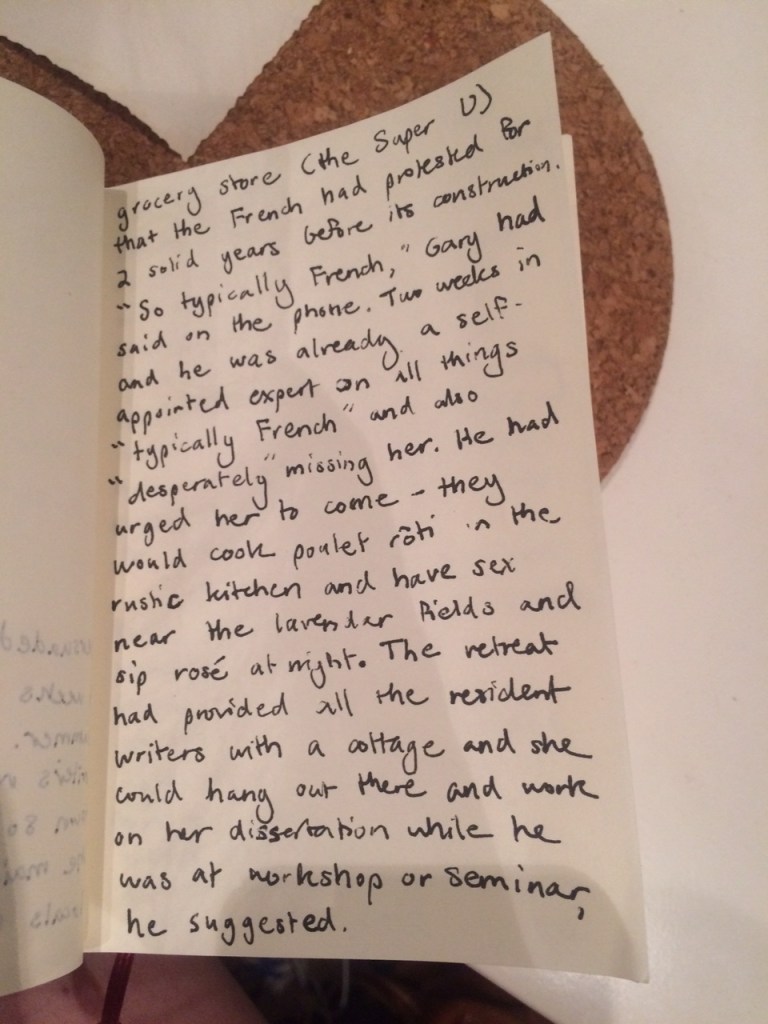 grocery store (the Super U)
that the French had protested for
2 solid years before its construction.
"So typically French," Gary had
said on the phone. Two weeks in
and he was already a self-
appointed expert on all things
"typically French" and also
"desperately" missing her. He had
urged her to come – they
would cook poulet rôti in the
rustic kitchen and have sex
near the lavendar fields and
sip rosé at night. The retreat
had provided all the resident
writers with a cottage and she
could hang out there and work
on her dissertation while he
was at workshop or seminar,
he suggested.